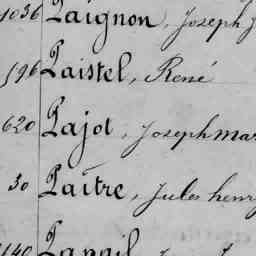 1036 Paignon, Joseph J
596 Paistel, René
620 Pajot, Joseph mar
30 Paître, Jules henry
140 Papail